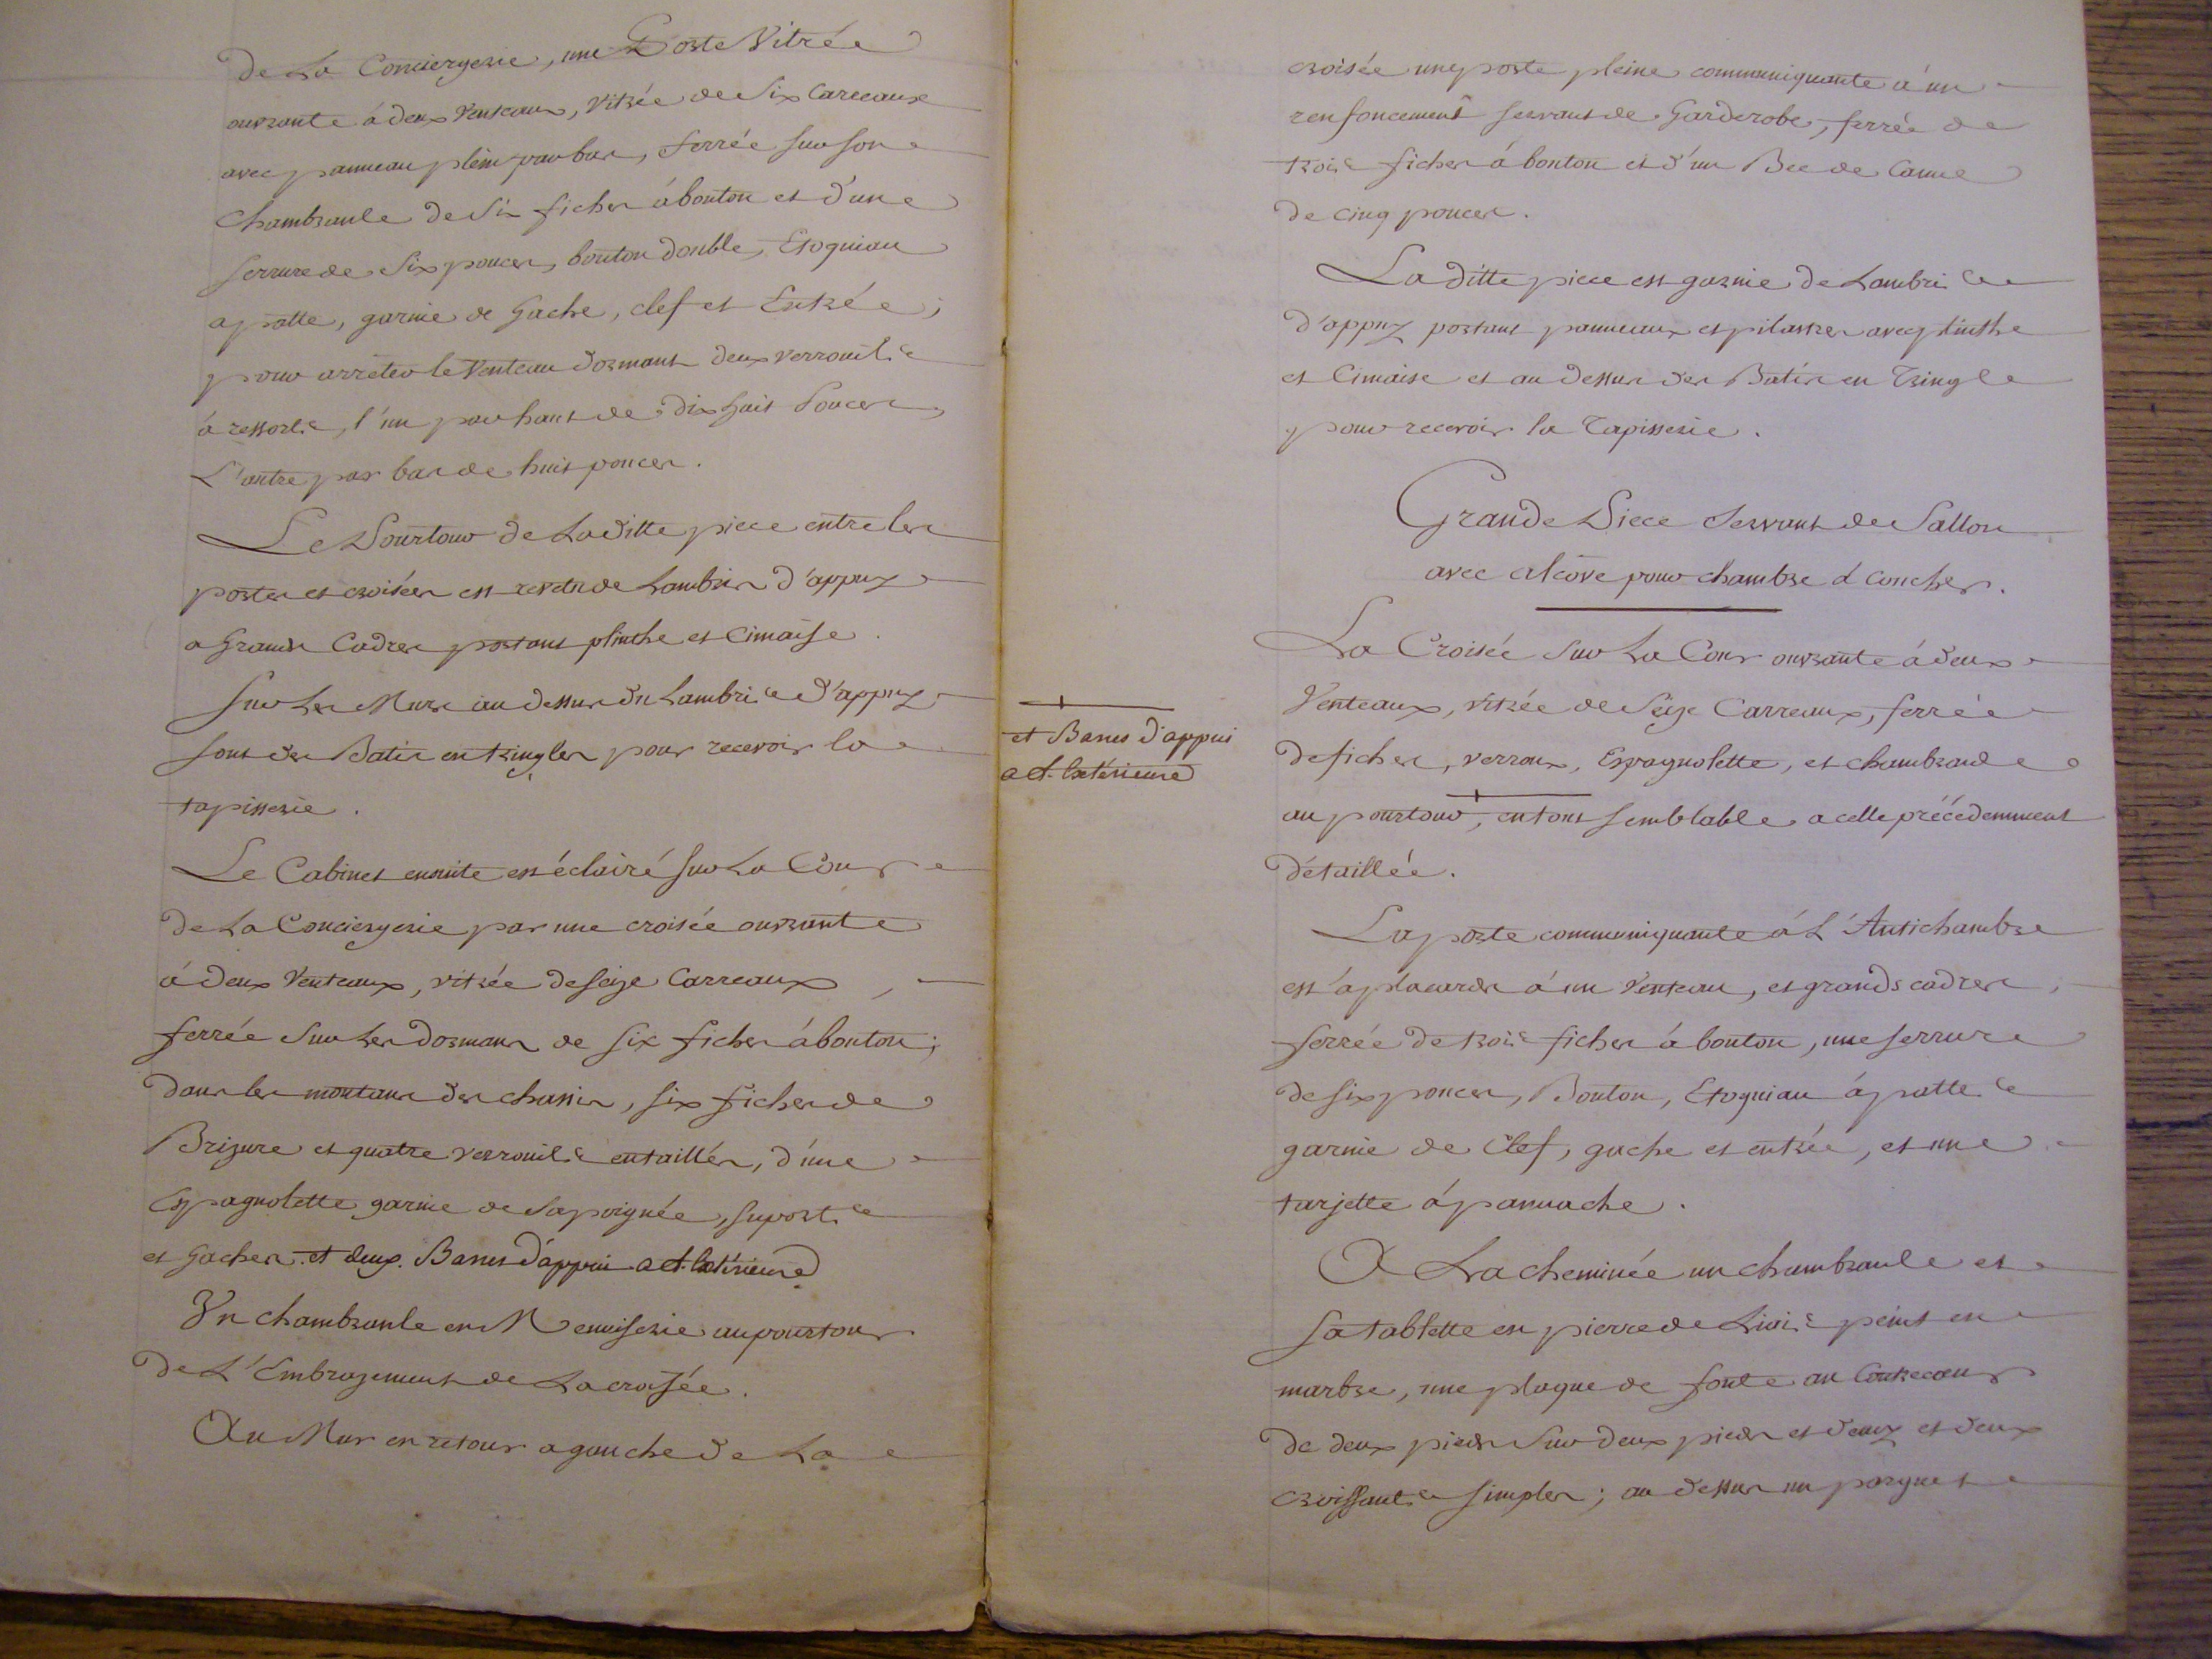 de La Conciergerie, une Porte Vitrée
ouvrante à deux Venteaux, Vitrée de Six Carreaux
avec panneau plein par bas, ferrée sur son
Chambranle de Six fiches à bouton et d'une
serrure de Six pouces, bouton double, Etoquiau
a patte, garnie de Gache, clef et Entrée;
pour arrêter le Venteau dormant deux verrouils
à ressorts, l'un par haut de dix huit Pouces,
L'autre par bas de huit pouces.
Le Pourtour de La ditte piece entre les
portes et croisées est revetu de Lambris d'appuy
a Grands Cadres portant plinthe et Cimaise.
Sur Les Murs au dessus du Lambris d'appuy
sont des Batis en tringles pour recevoir la
tapisserie.
Le Cabinet ensuite est éclairé sur La Cour
de La Conciergerie par une croisée ouvrante
à deux Venteaux, vitrée de seize Carreaux,
ferrée sur Les dormans de six fiches à bouton;
dans les montans des chassis, six fiches de
Brizure et quatre verrouils entaillés, d'une
Espagnolette garnie de sa poignée, suports
et Gaches. et deux Barres d'appui a l'Extérieure
Un chambranle en Menuiserie au pourtour
de L'Embrazement de La croisée.
Au Mur en retour a gauche de La
et Barres d'appui
a l'Extérieure
croisée une porte pleine communiquante à un
renfoncement servant de Garderobe, ferrée de
trois fiches à bouton et d'un Bec de Canne
de cinq pouces.
La ditte piece est garnie de Lambris
d'appuy portant panneaux et pilastres avec plinthe
et Cimaise et au dessus des Batis en Tringle
pour recevoir la Tapisserie.
Grande Piece Servant de Sallon
avec alcove pour chambre à coucher.
La Croisée sur La Cour ouvrante à deux
Venteaux, vitrée de Seize Carreaux, ferrée
de fiches, verroux, Espagnolette, et chambranle
au pourtour, en tout semblable a celle précédemment
détaillée.
La porte communiquante à L'Antichambre
est à placards à un Venteau, et grands cadres,
ferrée de trois fiches à bouton, une serrure
de six pouces, Bouton, Etoquiau à patte
garnie de Clef, gache et entrée, et une
tarjette à panache.
A La cheminée un chambranle et
sa tablette en pierre de Liais peint en
marbre, une plaque de fonte au Contrecoeur
de deux pieds sur deux pieds et demy et deux
croissants simples; au dessus un parquet